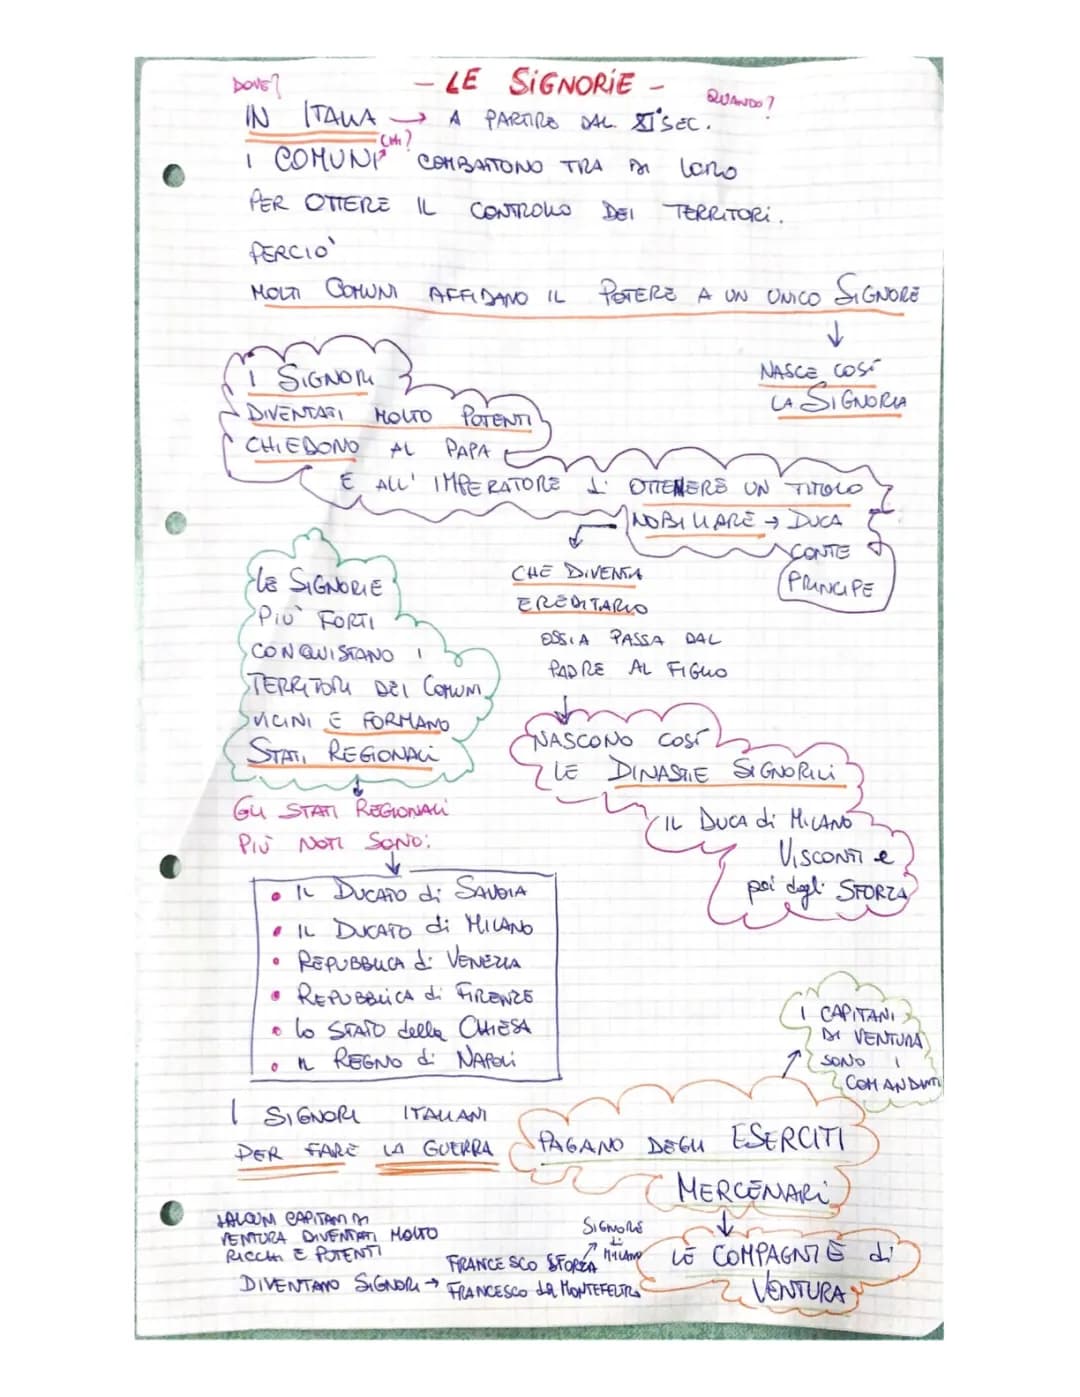 DOVE?
- LE SIGNORIE -
QUANDO?
IN ITALIA → A PARTIRE DAL XI° SEC.
CHI?
I COMUNI COMBATTONO TRA DI LORO
PER OTTERE IL CONTROLLO DEI TERRITORI.
PERCIO'
MOLTI COMUNI AFFIDANO IL POTERE A UN UNICO SIGNORE
↓
NASCE COSÍ
LA SIGNORIA
I SIGNORI
DIVENTATI MOLTO POTENTI
CHIEDONO AL PAPA
E ALL' IMPERATORE di OTTENERE UN TITOLO
NOBILIARE → DUCA
CONTE
PRINCIPE
CHE DIVENTA
EREDITARIO
OSSIA PASSA DAL
PADRE AL FIGLIO
↓
NASCONO COSÍ
LE DINASTIE SIGNORILI
IL DUCA di MILANO
VISCONTI e
poi degli SFORZA
LE SIGNORIE
PIU' FORTI
CONQUISTANO I
TERRITORI DEI COMUNI
VICINI E FORMANO
STATI REGIONALI
↓
GLI STATI REGIONALI
PIÚ NOTI SONO:
↓
• IL DUCATO di SAVOIA
• IL DUCATO di MILANO
• REPUBBLICA di VENEZIA
• REPUBBLICA di FIRENZE
• LO STATO della CHIESA
• IL REGNO di NAPOLI
I CAPITANI
DI VENTURA
SONO I
COMANDANTI
I SIGNORI ITALIANI
PER FARE LA GUERRA
PAGANO DEGLI ESERCITI
MERCENARI
↓
LE COMPAGNIE di
VENTURA
ALCUNI CAPITANI DI
VENTURA DIVENTATI MOLTO
RICCHI E POTENTI
DIVENTANO SIGNORI →
FRANCESCO SFORZA
SIGNORE
di
MILANO
FRANCESCO DA MONTEFELTRO